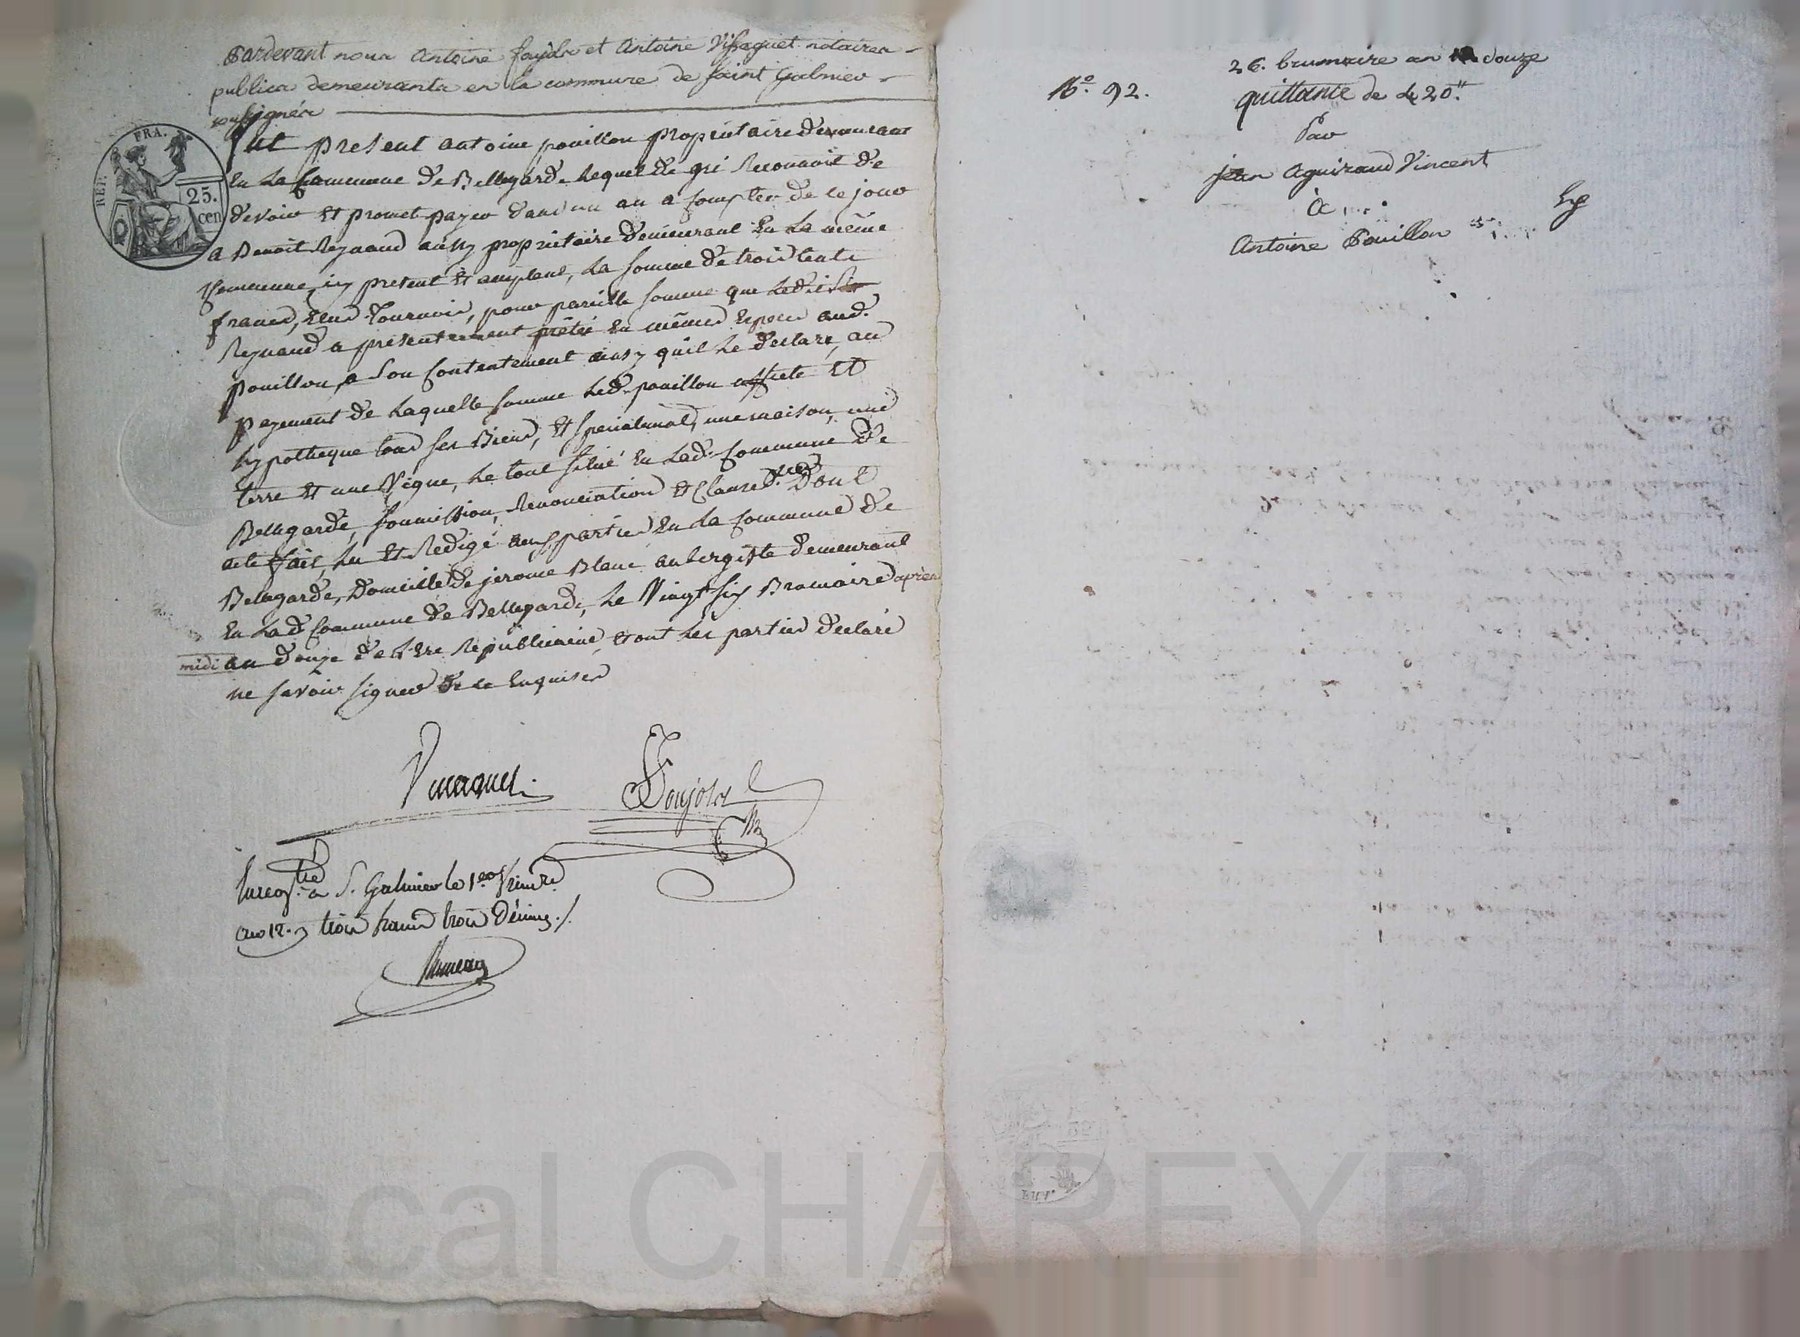 Pardevant nous Antoine Foujols et Antoine Vissaguet notaires
publics demeurants en la commune de Saint Galmier
soussignés
REP. FRA.
25.
cen
fut present antoine pouillon proprietaire demeurant
En La Commune de Bellegarde Lequel de gré Reconnoit de
devoir Et promet payer dans un an a Compter de ce jour
a Benoit Reynaud aussy proprietaire demeurant En La même
Commune, icy present Et acceptant, La somme de trois cents
francs, Tournois, pour pareille somme que Ledit
Reynaud a presentement prêté En mêmes Especes aud.
pouillon, a son Contentement ainsy quil Le declare, au
payement de Laquelle somme Led. pouillon affecte Et
hypotheque tous ses Biens, Et specialement une maison, une
terre Et une Vigne, Le tout situé En Lad. Commune de
Bellegarde, soumission, Renonciation Et Clauses Dont
acte fait, Lu Et Redigé aux parties En La Commune de
Bellegarde, Domicile de jerome Blanc aubergiste demeurant
En Lad. Commune de Bellegarde, Le Vingt six Brumaire après
midi an douze de L'Ere Republicaine, Et ont Les parties déclaré
ne savoir signer de ce Enquises
Vissaguet
Foujols
Enregtré a St. Galmier le 1er frimre
an 12. trois francs trois décimes
26. brumaire an douze
No. 92.
quittance de 420.
Par
jean Aguiraud Vincent
à
Antoine Pouillon
Eg
Pascal CHAREYRON